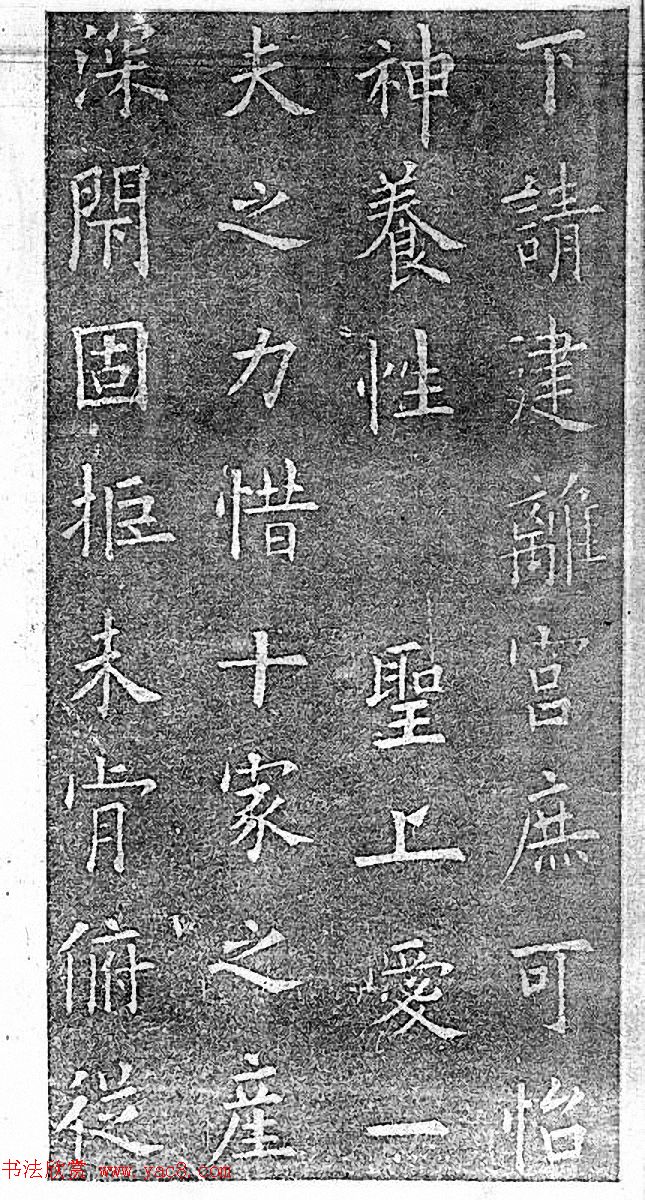 下請建離宮庶可怡
神養性 聖上愛一
夫之力惜十家之產
深閇固拒未肯俯從
书法欣赏 www.yac8.com